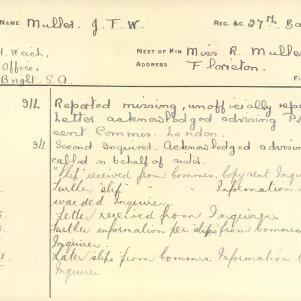 NAME Muller. J. F. W. REG. &C. 27th Ba
H. Weich. NEXT OF KIN Miss R. Mulle
Office, ADDRESS Florieton.
Bright. S.A.
9/1. Reported missing, unofficially repo
Letter acknowledged advising P/
sent Commrs. London.
9/1 Second Inquirer. Acknowledged advising
called on behalf of sister.
"Slip" received from Commrs. Copy sent Inqui
Further "slip" " " Information
warded Inquirer
Letter received from Inquirer.
Further information per slips from Commrs
Inquirer.
Later slips from Commrs. Information t
Inquirer